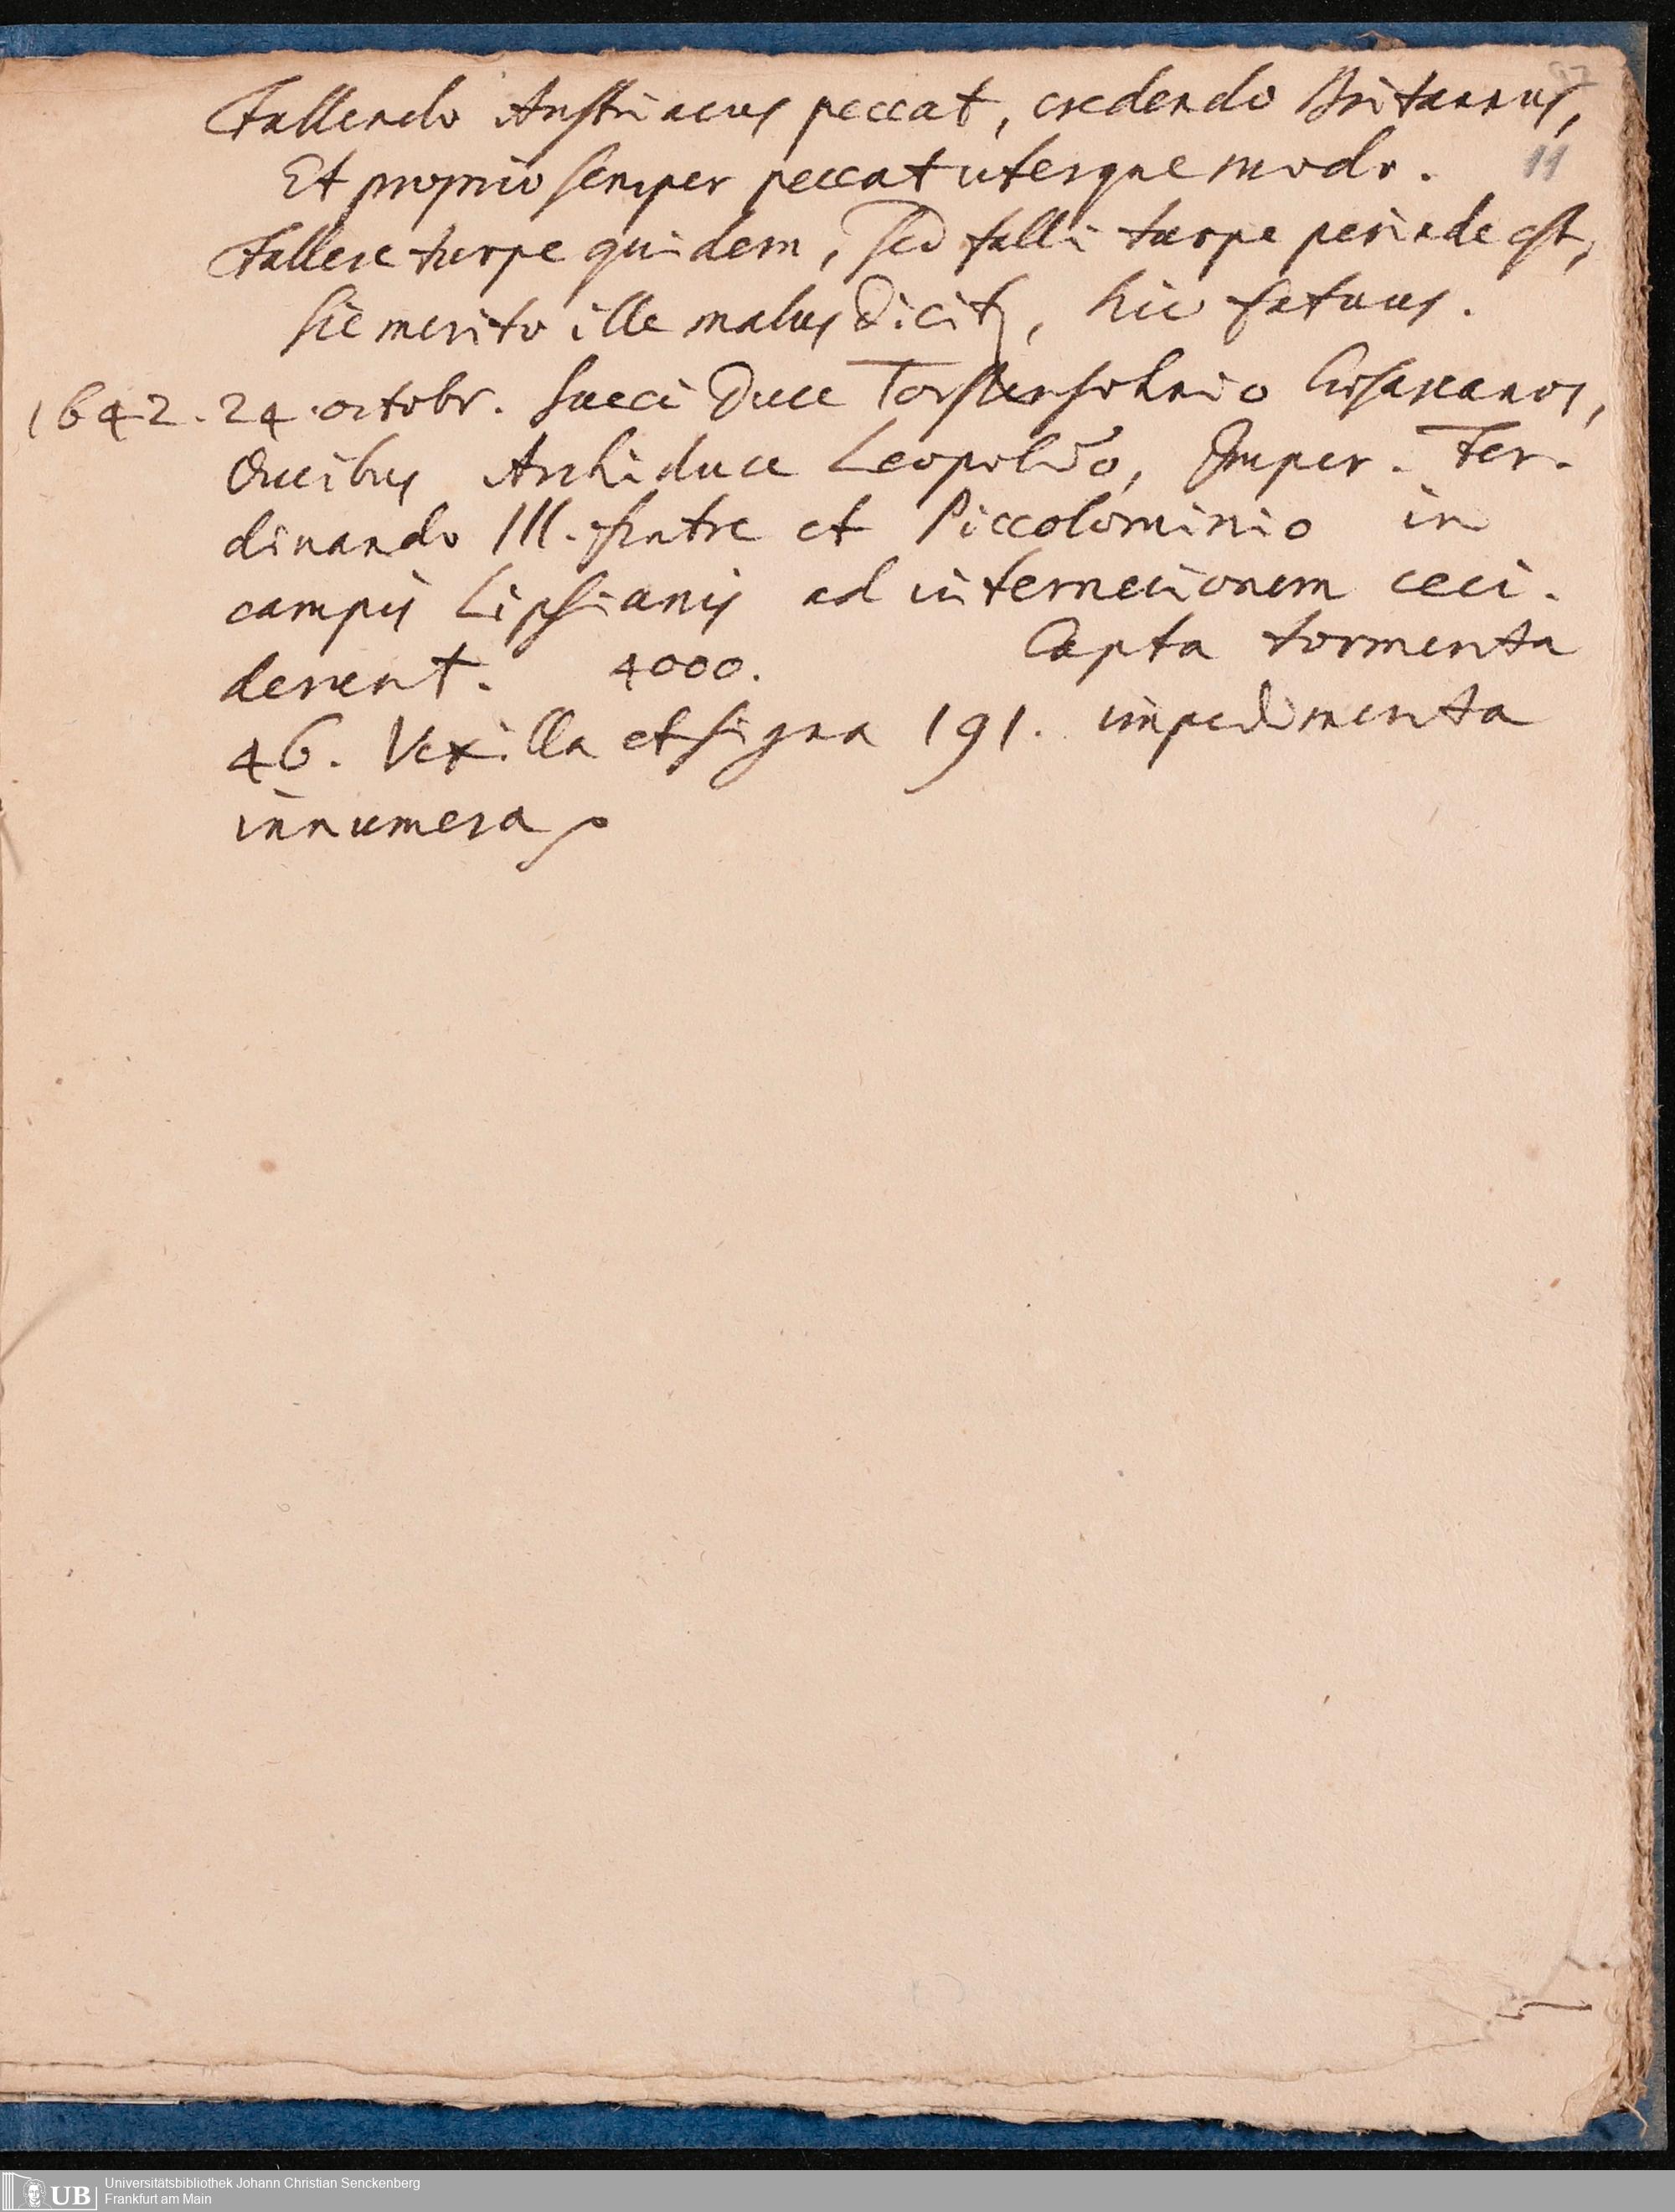 97
Fallendo Austriacus peccat, credendo Britannus,
11
Et proprio semper peccat uterque modo.
Fallere turpe quidem, sed falli turpe perinde est,
Sic merito ille malus dicitr, hic fatuus.
1642. 24. octobr. Sueci Duce Torstensohnio
Ducibus Archiduce Leopoldo, Imper. Fer-
dinando III. fratre et Piccolominio in
campis Lipsianis ad internecionem ceci-
derunt. 4000. Capta tormenta
46. Vexilla et signa 191. impedimenta
innumera
UB Universitätsbibliothek Johann Christian Senckenberg
Frankfurt am Main